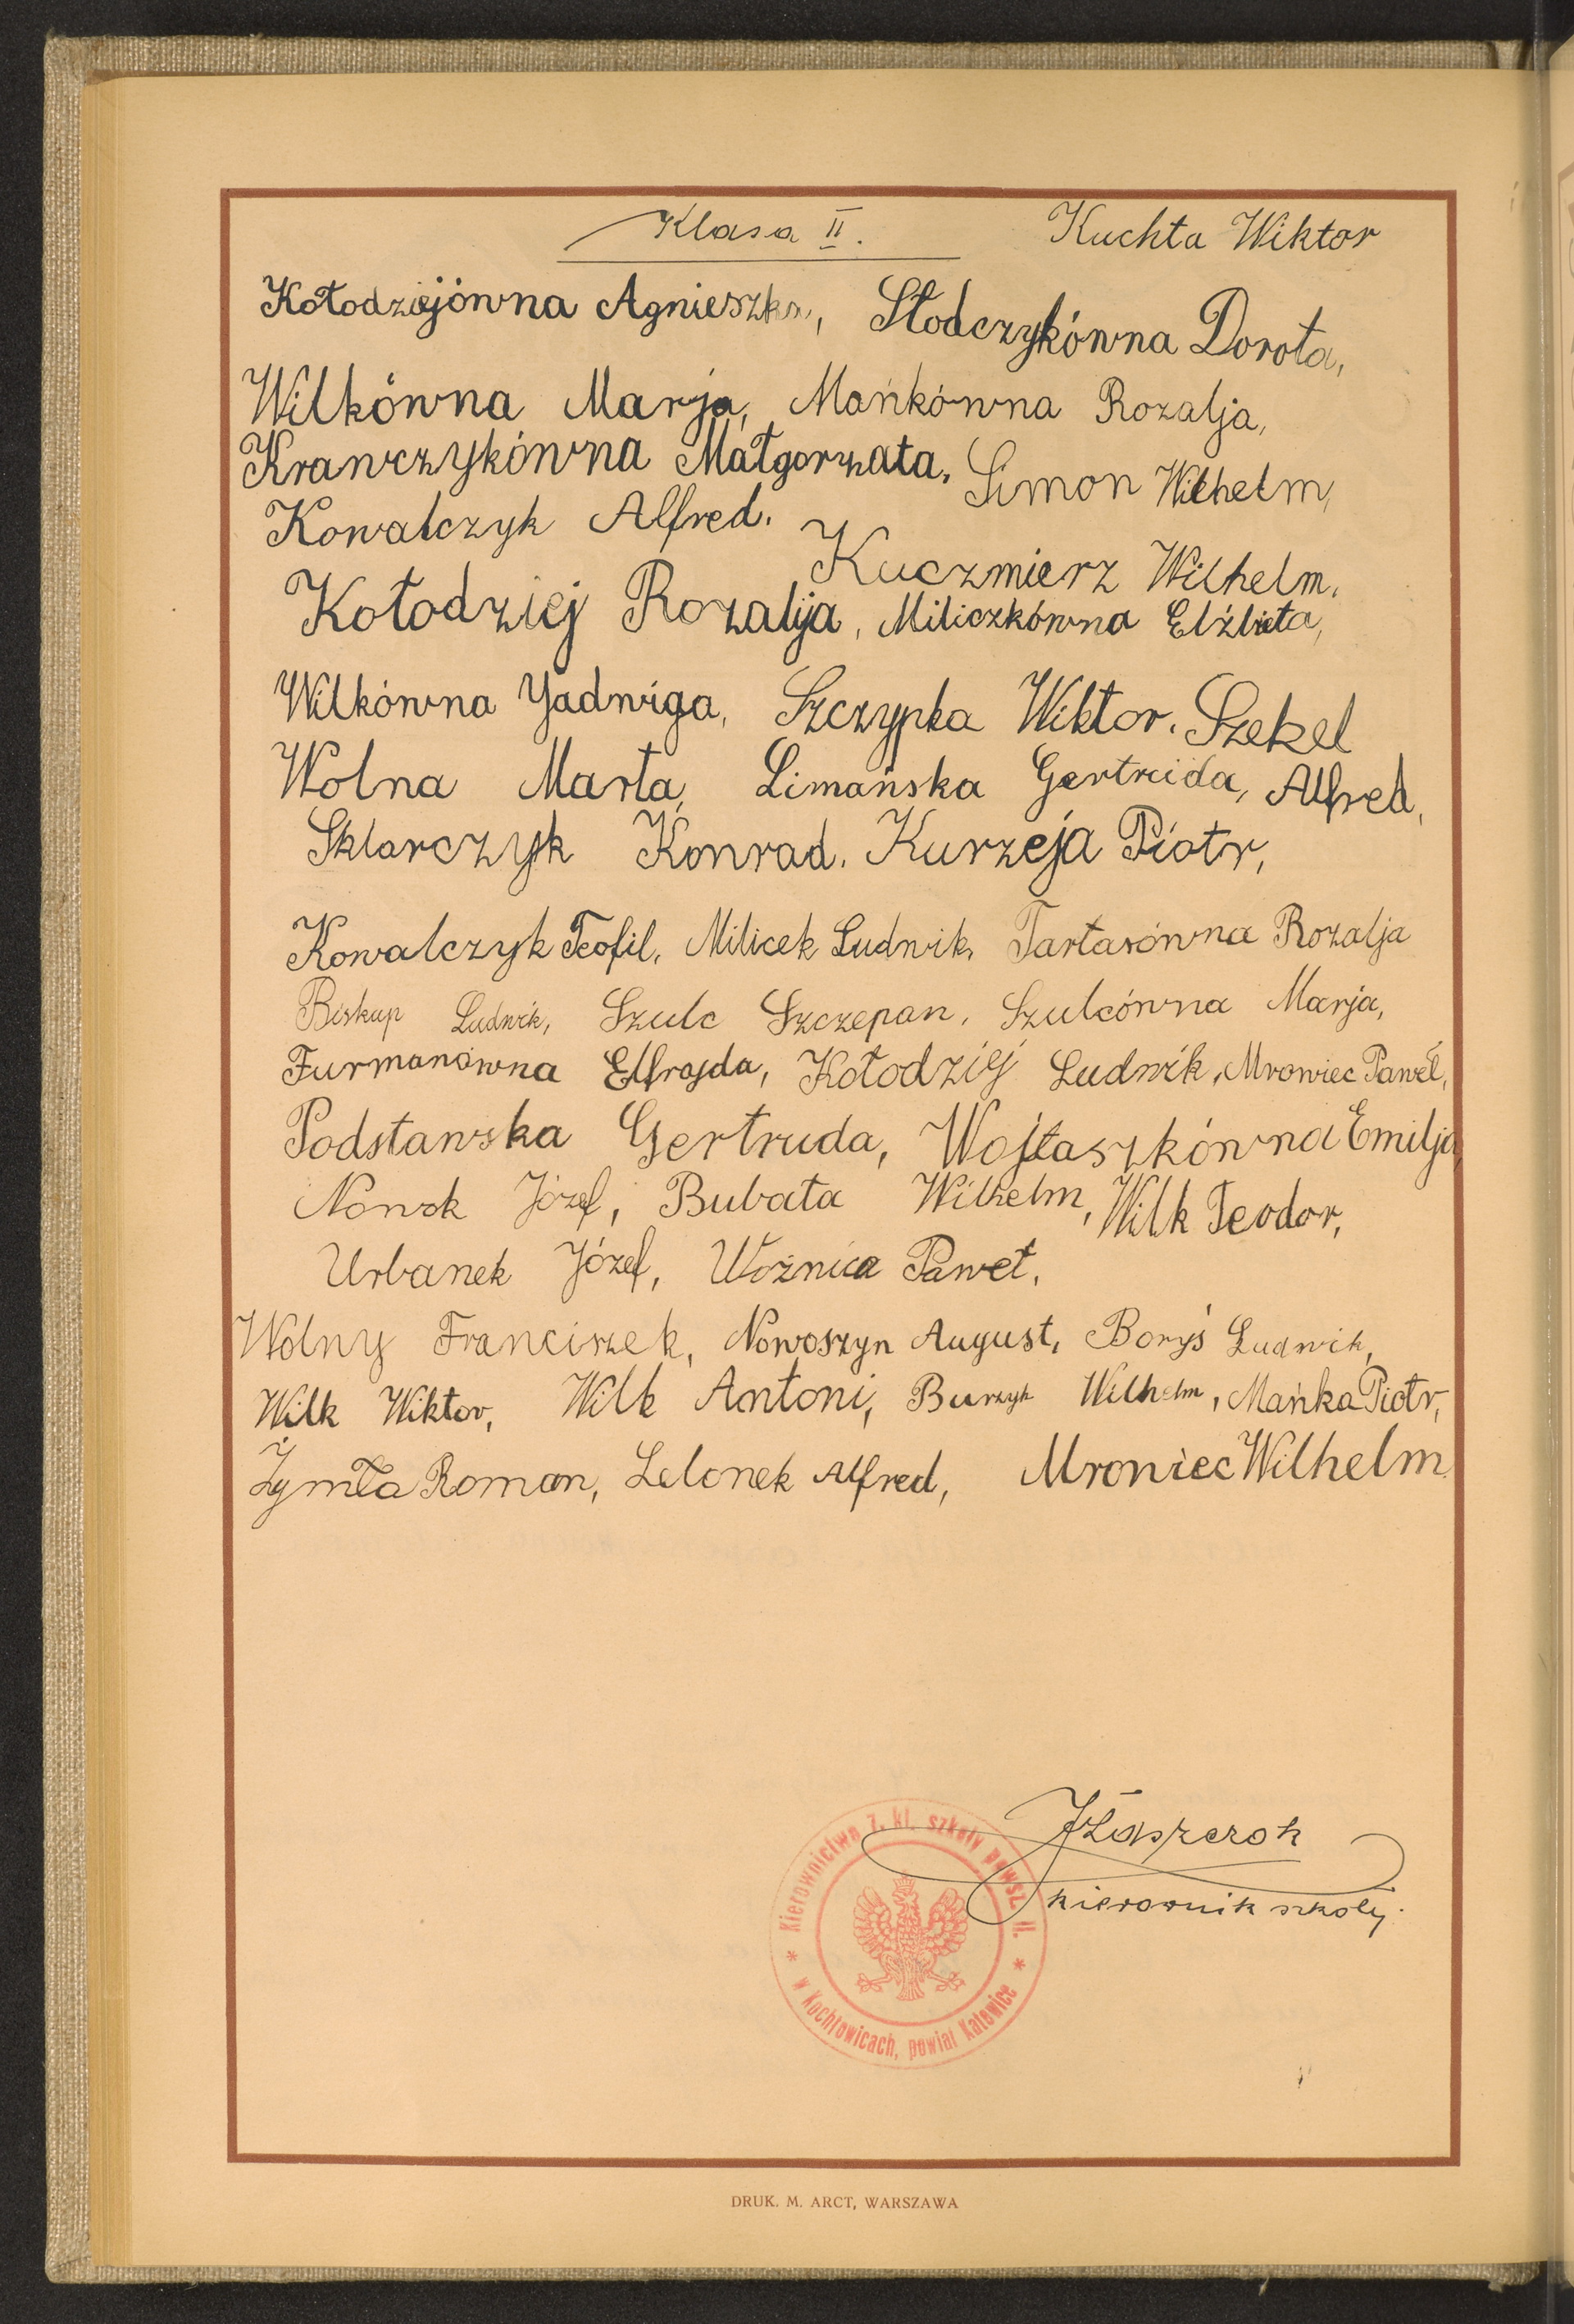 Klasa II. Kuchta Wiktor
Kołodziejówna Agnieszka, Słodczykówna Dorota,
Wilkówna Marja, Mańkówna Rozalja,
Krawczykówna Małgorzata, Simon Wilhelm,
Kowalczyk Alfred. Kuczmierz Wilhelm.
Kołodziej Rozalija, Miliczkówna Elżbieta,
Wilkówna Jadwiga, Szczypka Wiktor. Szekel
Wolna Marta, Limańska Gertruda, Alfred,
Sklarczyk Konrad. Kurzeja Piotr,
Kowalczyk Teofil, Milicek Ludwik, Tartasówna Rozalja
Biskup Ludwik, Szulc Szczepan, Szulcówna Marja,
Furmanówna Elfrajda, Kołodziej Ludwik, Mrowiec Paweł,
Podstawska Gertruda, Wojtaszkówna Emilja,
Nowok Józef, Bubała Wilhelm, Wilk Teodor,
Urbanek Józef, Woźnica Paweł,
Wolny Franciszek, Nowoszyn August, Boryś Ludwik,
Wilk Wiktor, Wilk Antoni, Burzyk Wilhelm, Mańka Piotr,
Żymła Roman, Lelonek Alfred, Mrowiec Wilhelm
kierownik szkoły.
Kierownictwo 7. kl. szkoły powsz. II.
w Kochłowicach, powiat Katowice
DRUK. M. ARCT, WARSZAWA